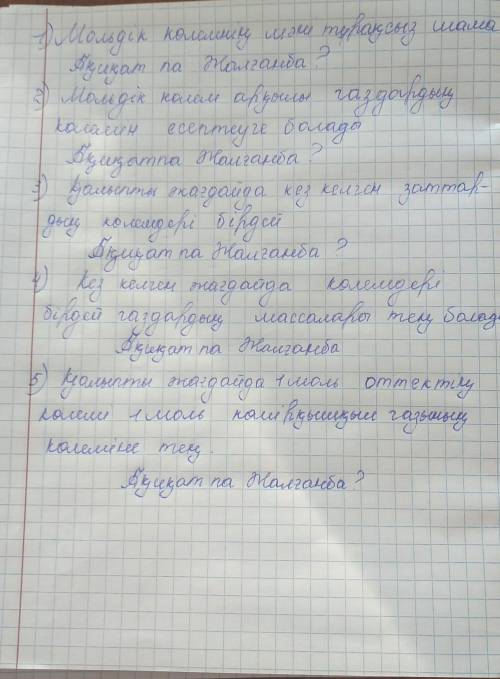 1) Мольдік көлемнің мәні тұрақсыз шама
Ақиқат па Жалғанба?
2) Мольдік көлем арқылы газдардың
көлемін есептеуге болады
Ақиқатпа Жалғанба?
3) Қалыпты жағдайда кез келген заттар-
дың көлемдері бірдей
Ақиқат па Жалғанба?
4) Кез келген жағдайда көлемдері
бірдей газдардың массалары тең болады
Ақиқат па Жалғанба
5) Қалыпты жағдайда 1 моль оттектің
көлемі 1 моль көмірқышқыл газының
көлеміне тең.
Ақиқат па Жалғанба?